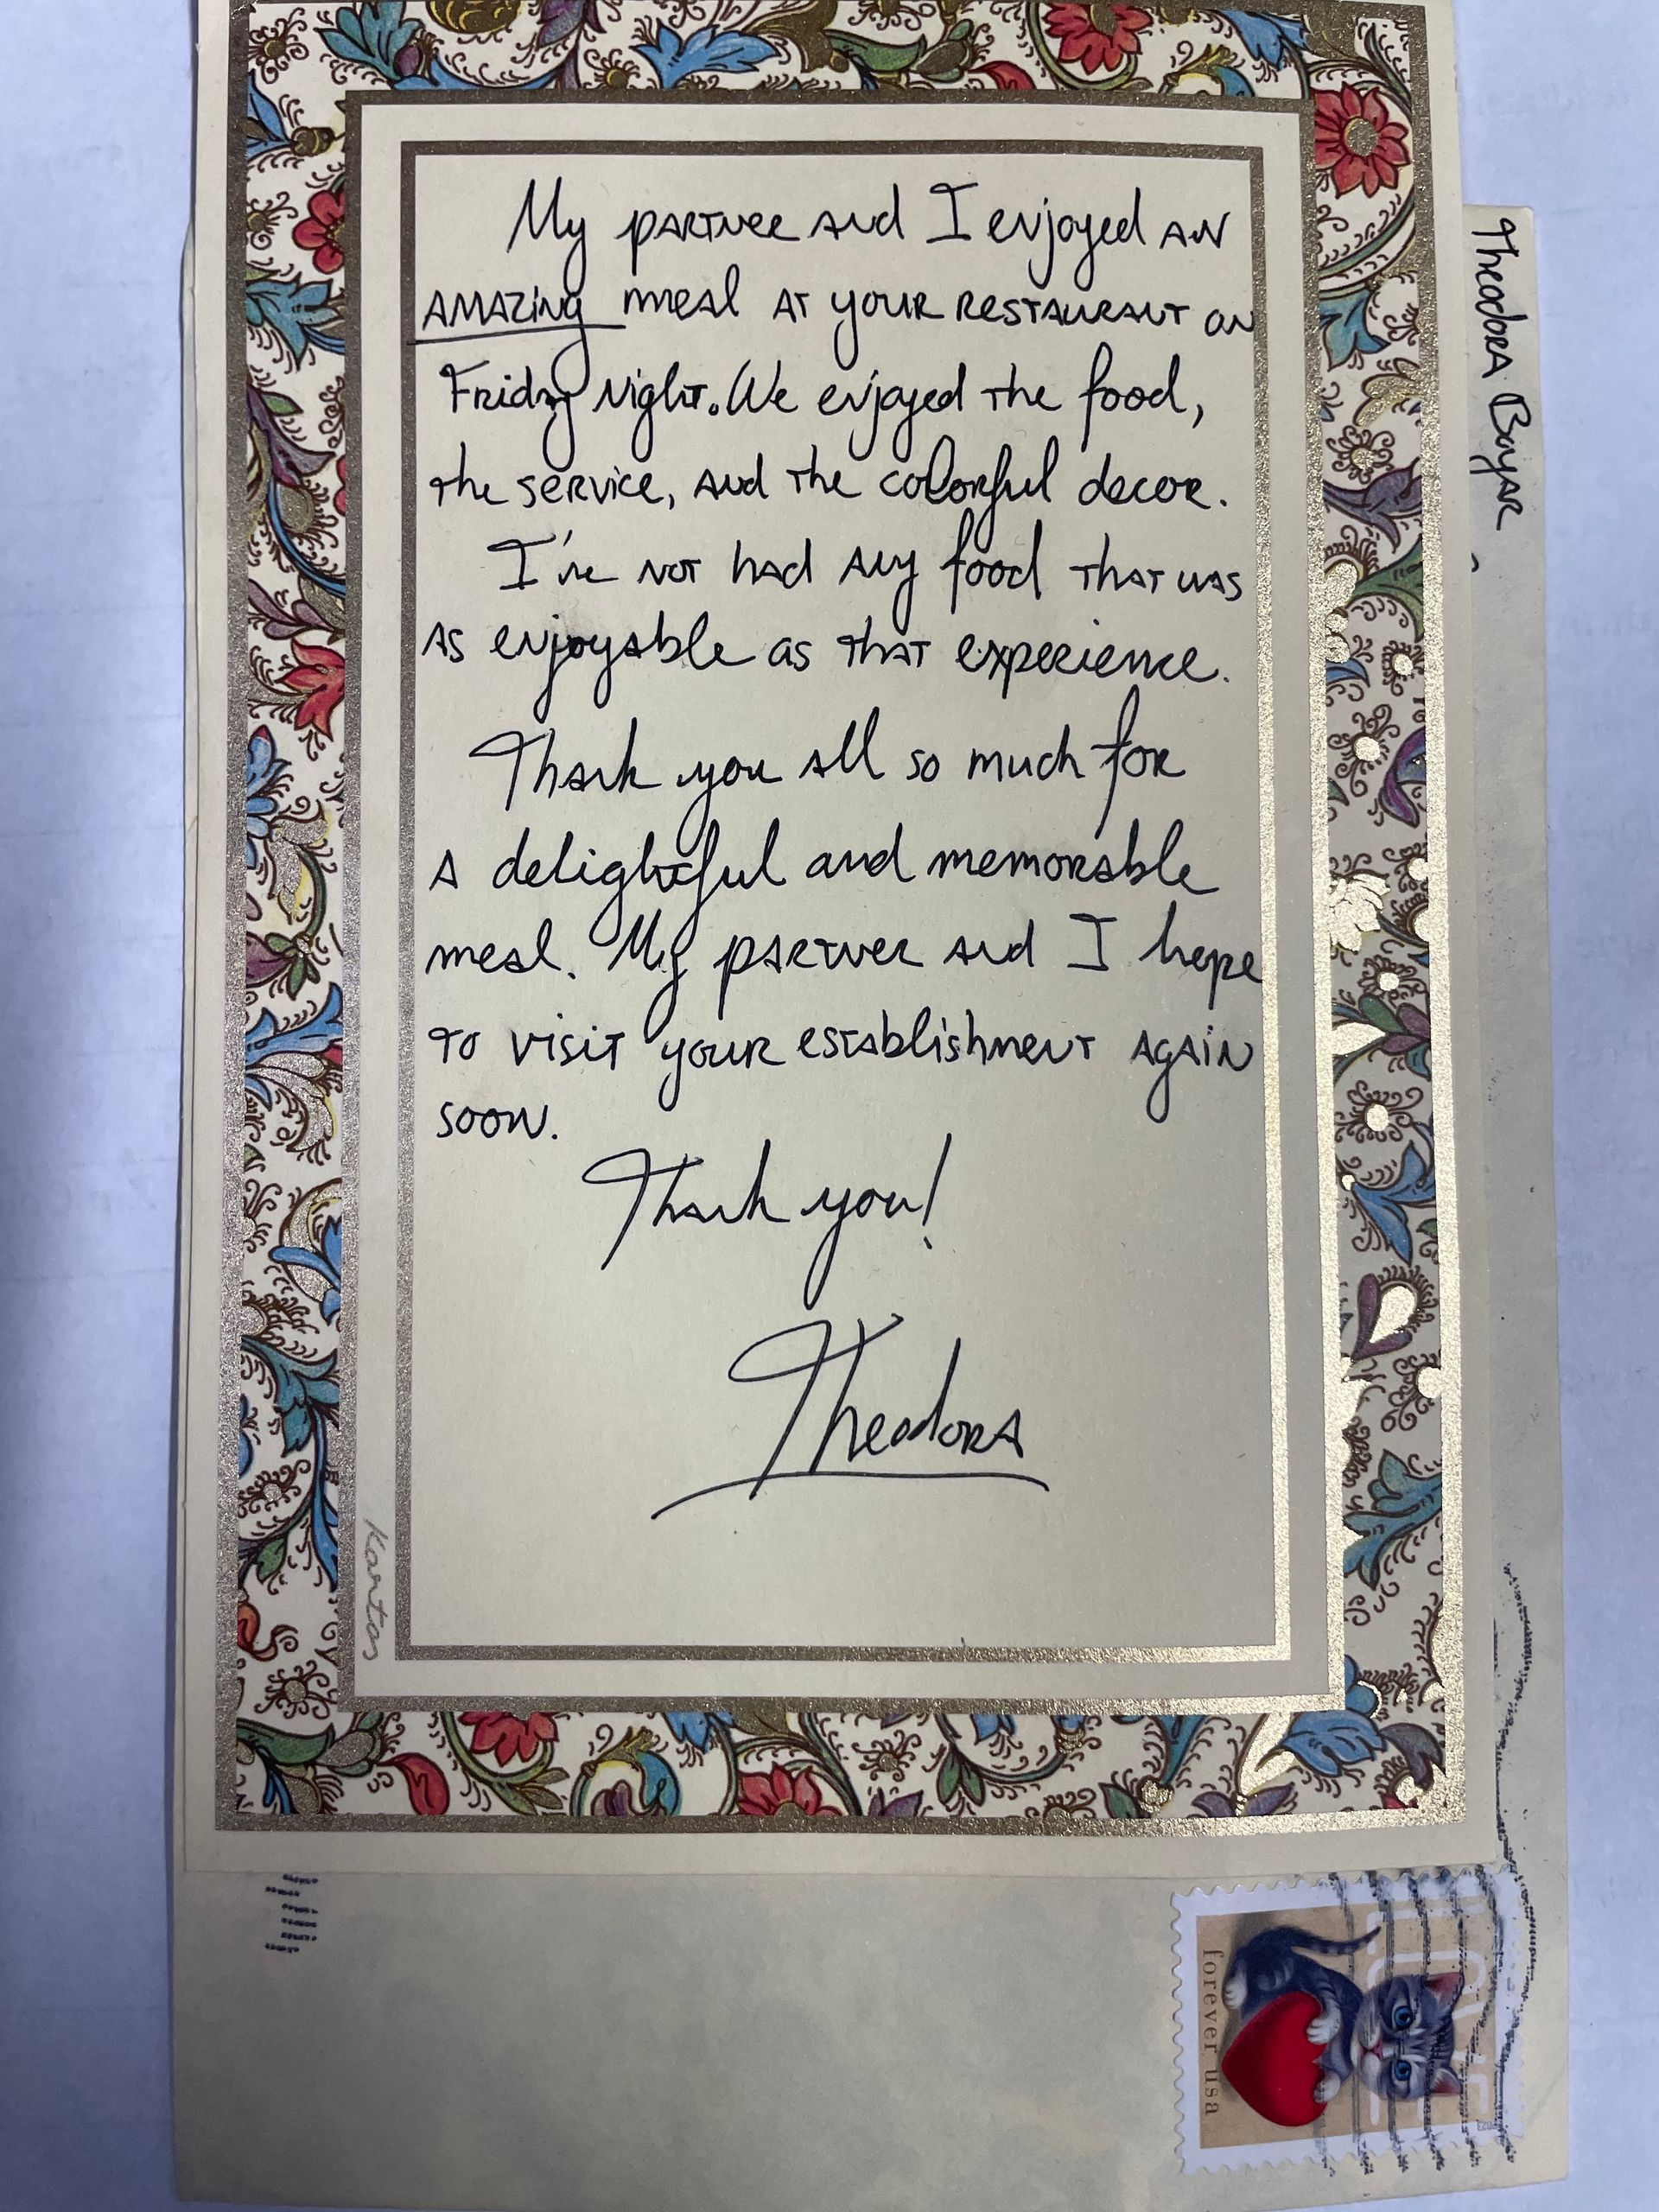 My partner and I enjoyed an
amazing meal at your restaurant on
Friday night. We enjoyed the food,
the service, and the colorful decor.
I've not had any food that was
as enjoyable as that experience.
Thank you all so much for
a delightful and memorable
meal. My partner and I hope
to visit your establishment again
soon.
Thank you!
Theodora
Kartos
Theodora Boyar
LOVE
forever usa
2023